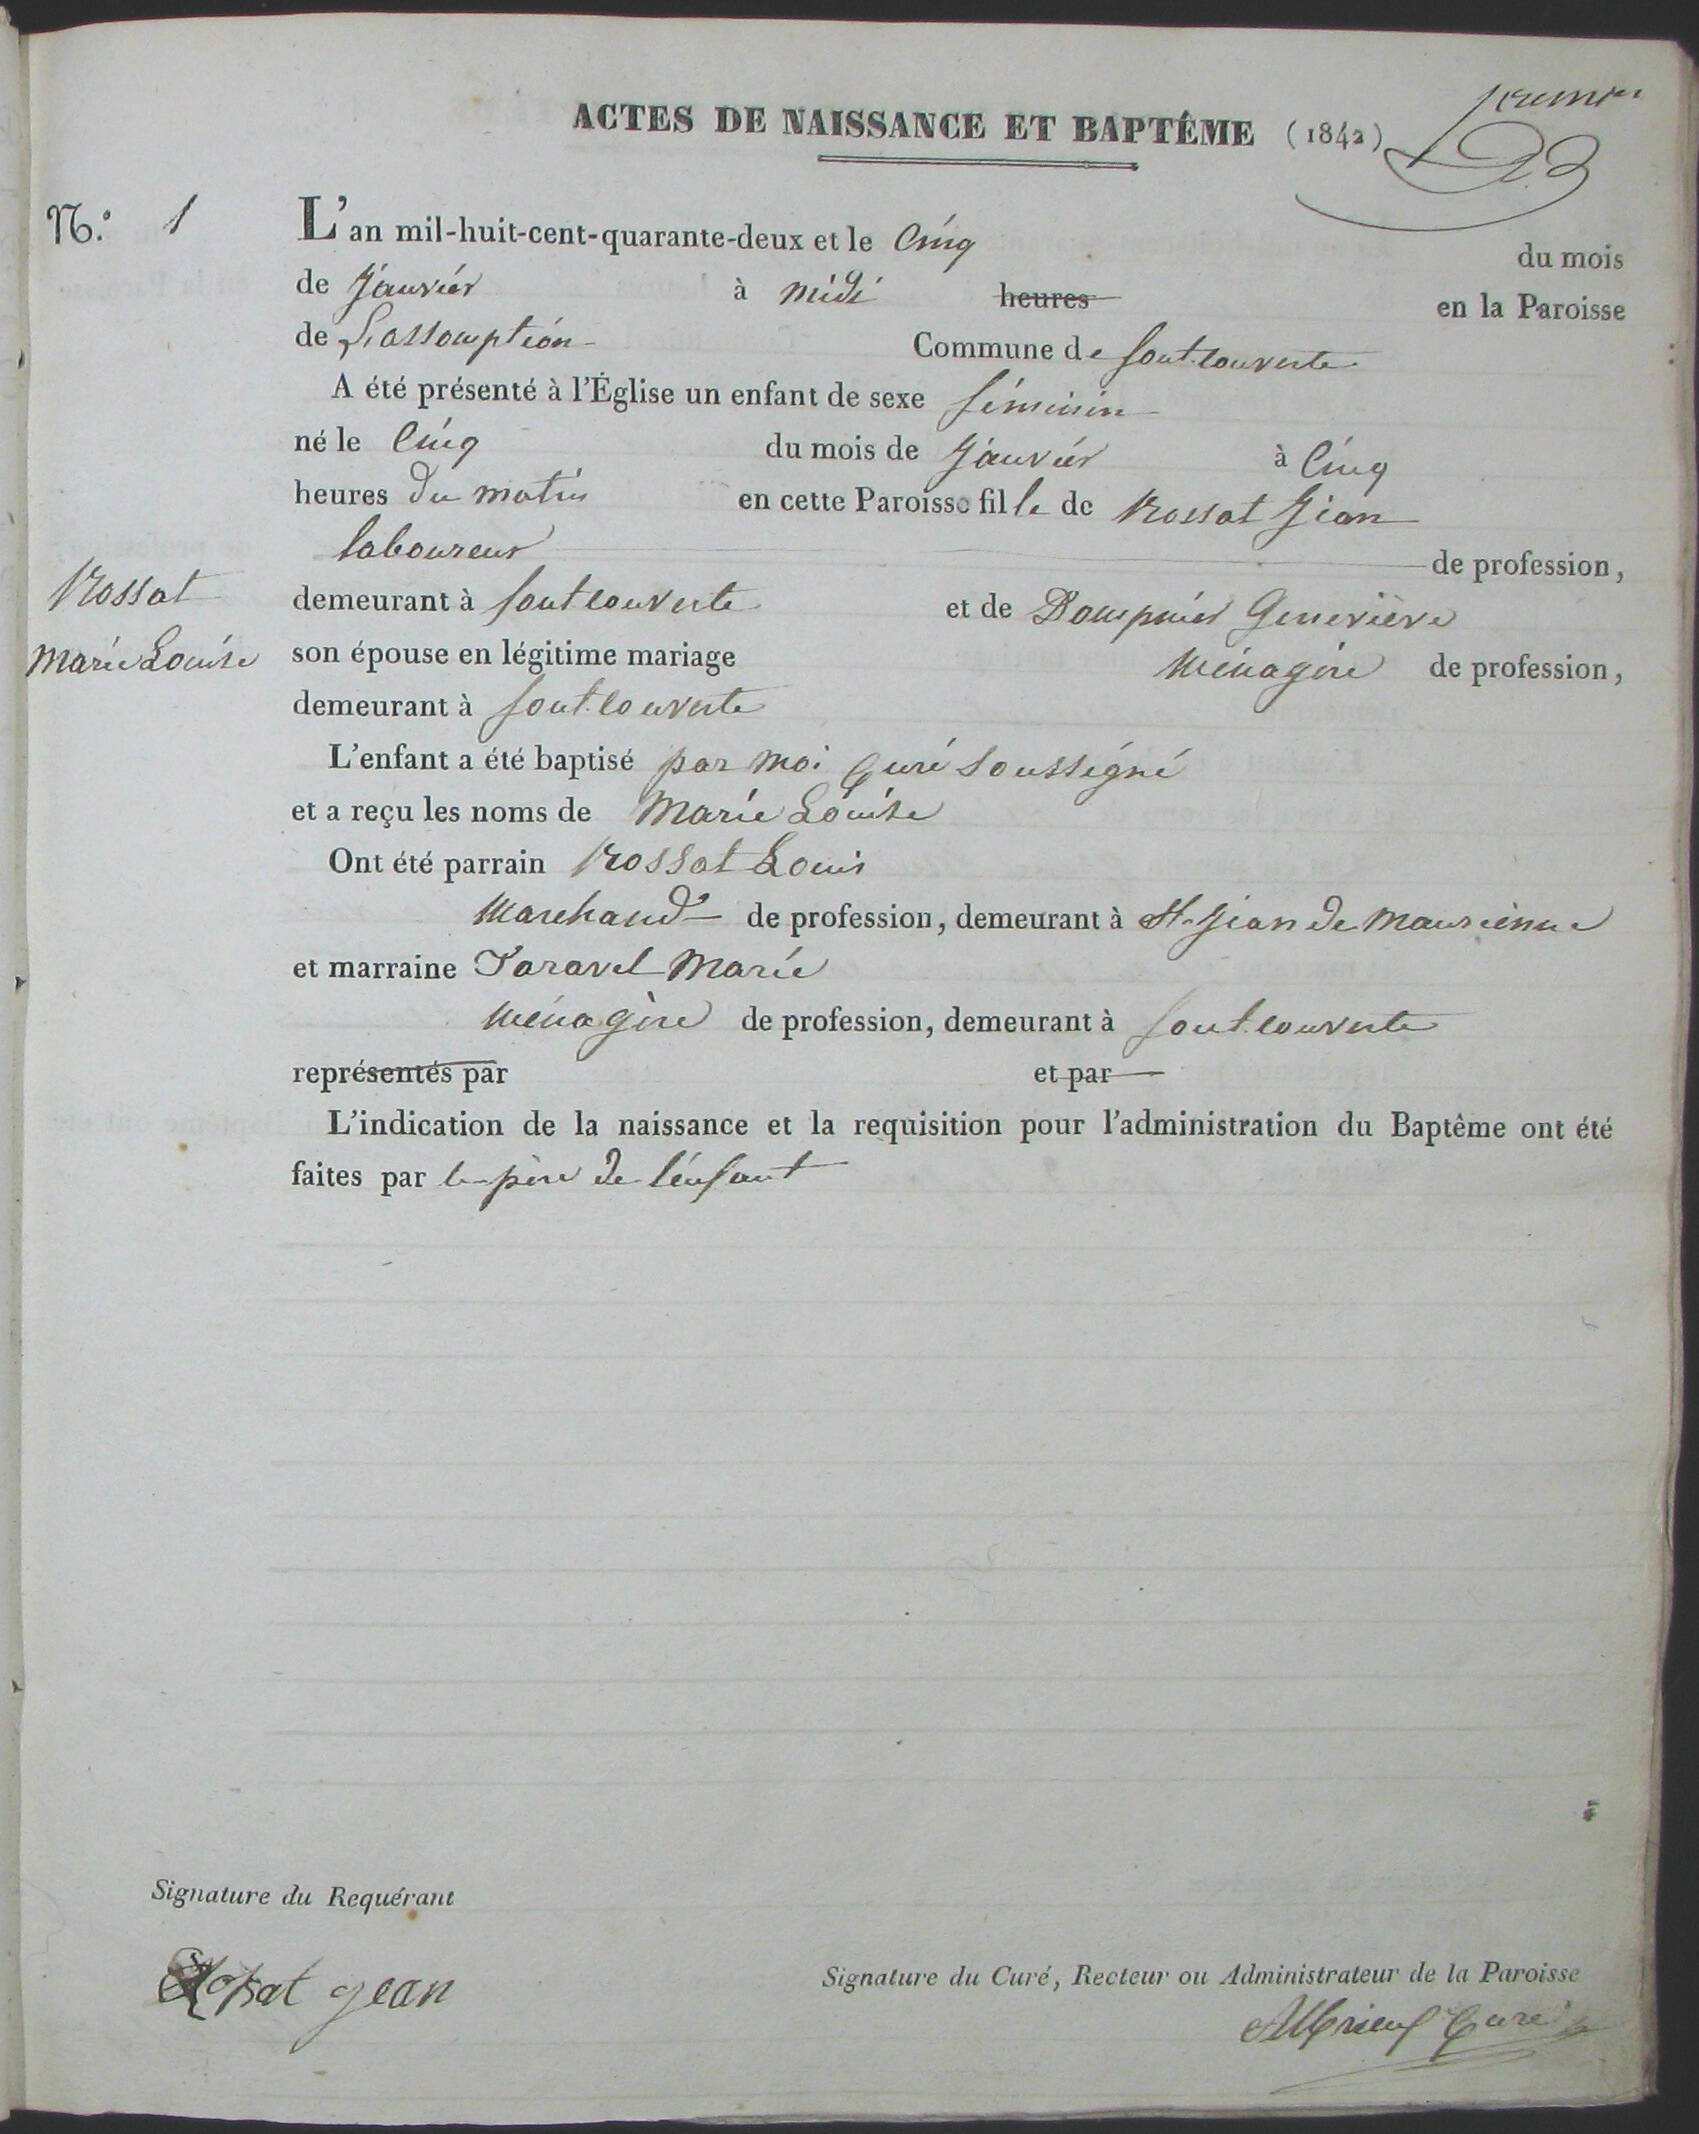 premier
ACTES DE NAISSANCE ET BAPTÊME (1842)
N.o 1
L'an mil-huit-cent-quarante-deux et le Cinq du mois
de Janvier à midi heures en la Paroisse
de L'assomption Commune de fontcouverte
A été présenté à l'Église un enfant de sexe féminin
né le Cinq du mois de Janvier à Cinq
heures du matin en cette Paroisse fille de Rossat Jean
laboureur de profession,
Rossat
Marie Louise
demeurant à fontcouverte et de Dompnier Geneviève
son épouse en légitime mariage ménagère de profession,
demeurant à fontcouverte
L'enfant a été baptisé par moi Curé soussigné
et a reçu les noms de Marie Louise
Ont été parrain Rossat Louis
Marchand de profession, demeurant à St Jean de Maurienne
et marraine Taravel Marie
ménagère de profession, demeurant à fontcouverte
représentés par et par
L'indication de la naissance et la requisition pour l'administration du Baptême ont été
faites par le père de l'enfant
Signature du Requérant
Rossat jean
Signature du Curé, Recteur ou Administrateur de la Paroisse
Curé